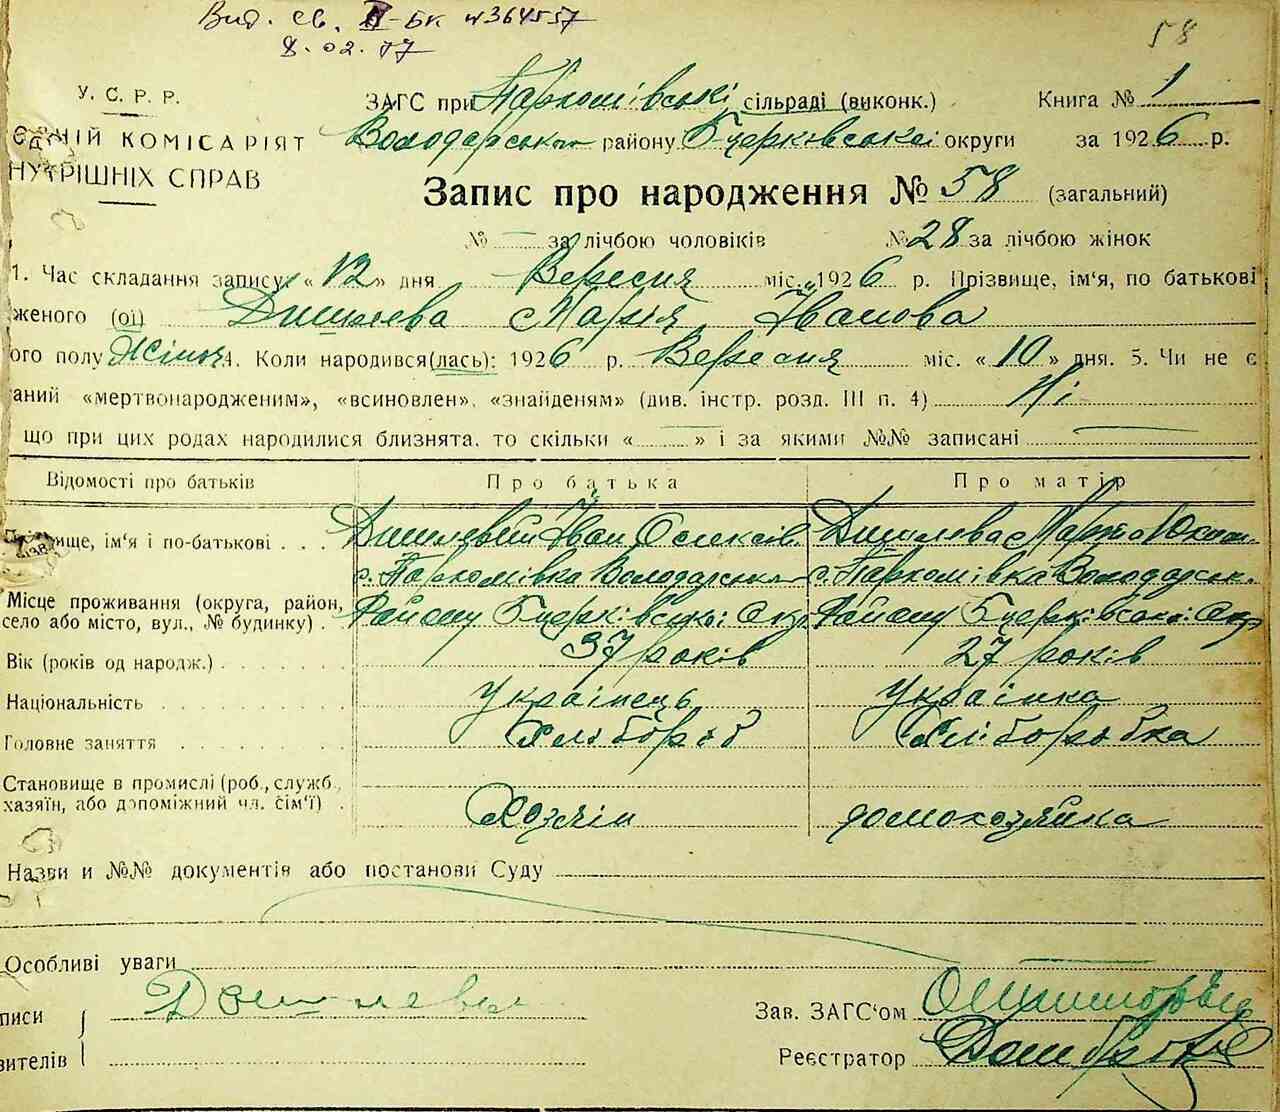 Вид. св. II-БК №364557
8.02.77
58
У. С. Р. Р.
ЗАГС при Пархомівські сільраді (виконк.) Книга № 1
КОМІСАРІЯТ Володарськ району Б церківської округи за 1926 р.
НУТРІШНІХ СПРАВ
Запис про народження № 58 (загальний)
№ — за лічбою чоловіків № 28 за лічбою жінок
1. Час складання запису: «12» дня Вересня міс. 1926 р. Прізвище, ім'я, по батькові
женого (ої) Дишлева Марія Іванова
ого полу Жіноч 4. Коли народився(лась): 1926 р. Вересня міс. «10» дня. 5. Чи не є
аний «мертвонародженим», «всиновлен», «знайденям» (див. інстр. розд. III п. 4) Ні
що при цих родах народилися близнята, то скільки « — » і за якими №№ записані —
Відомості про батьків Про батька Про матір
ище, ім'я і по-батькові . . . Дишлевий Іван Олексів. Дишлева Марія
с. Пархомівка Володарськ с. Пархомівка Володарськ.
Місце проживання (округа, район, село або місто, вул., № будинку) . Району Б церківської Окр. Району Б церківської Окр
Вік (років од народж.) 37 років 27 років
Національність Українець Українка
Головне заняття Хлібороб Хліборобка
Становище в промислі (роб., служб., хазяїн, або допоміжний чл. сім'ї) . Хозяїн домохозяйка
Назви и №№ документів або постанови Суду
Особливі уваги —
писи
вителів
Зав. ЗАГС'ом
Реєстратор